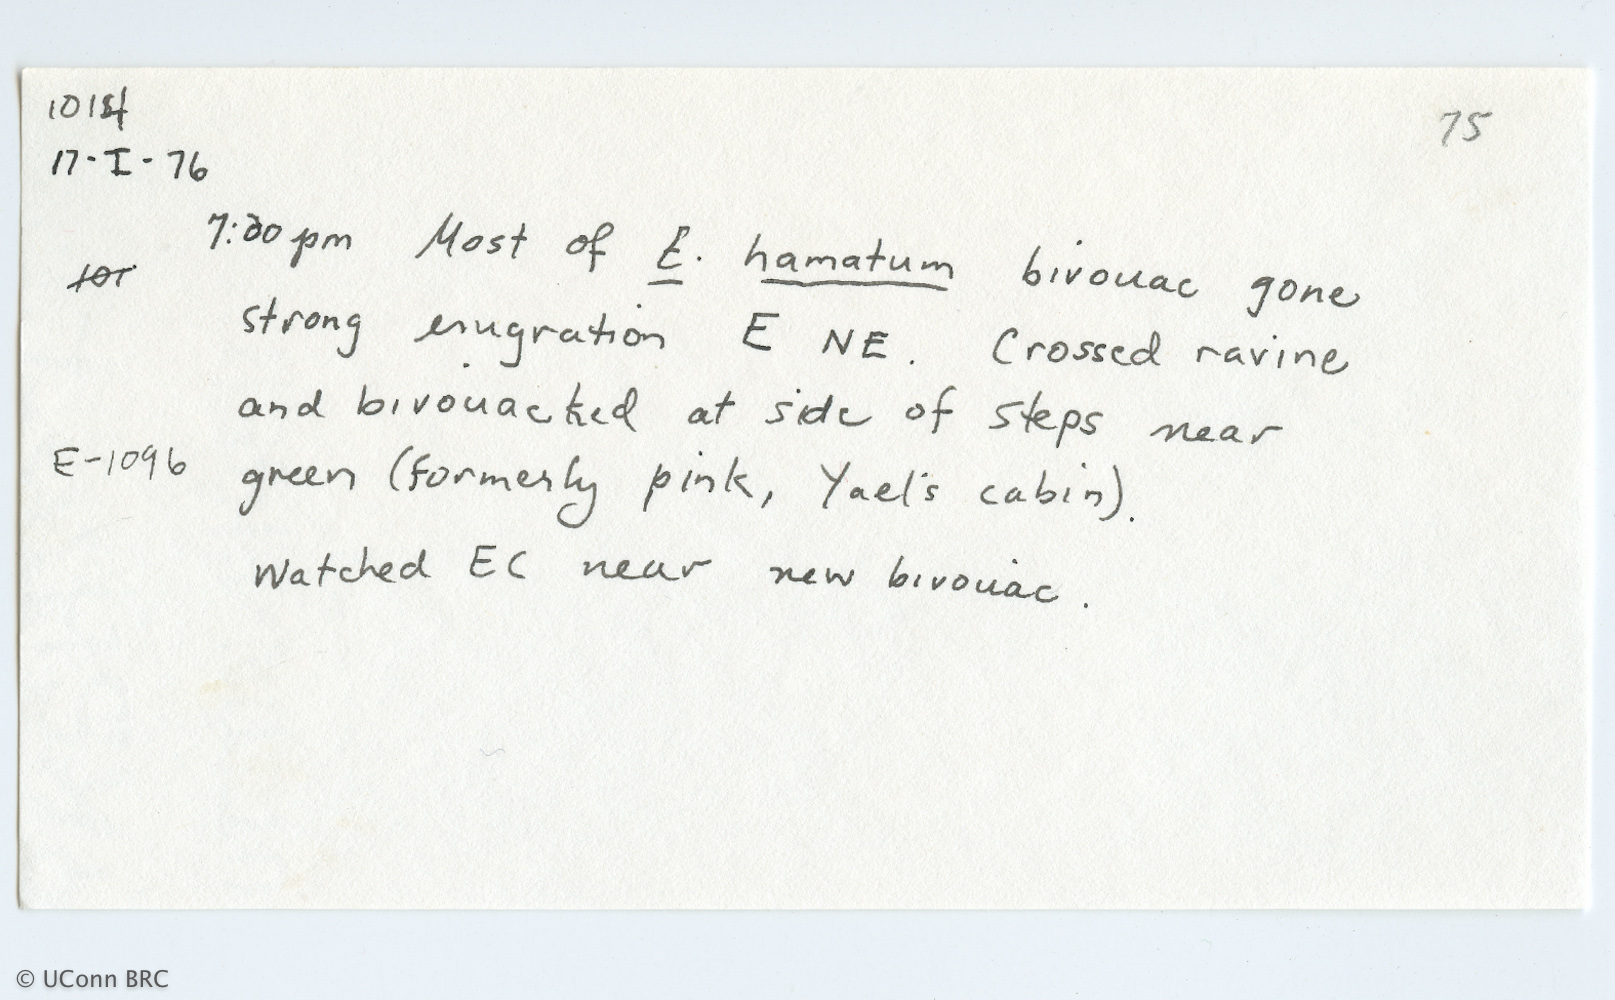 75
17-I-76
7:00 pm Most of E. hamatum bivouac gone
strong emigration E NE. Crossed ravine
and bivouacked at side of steps near
E-1096 green (formerly pink, Yael's cabin).
Watched EC near new bivouac.
© UConn BRC